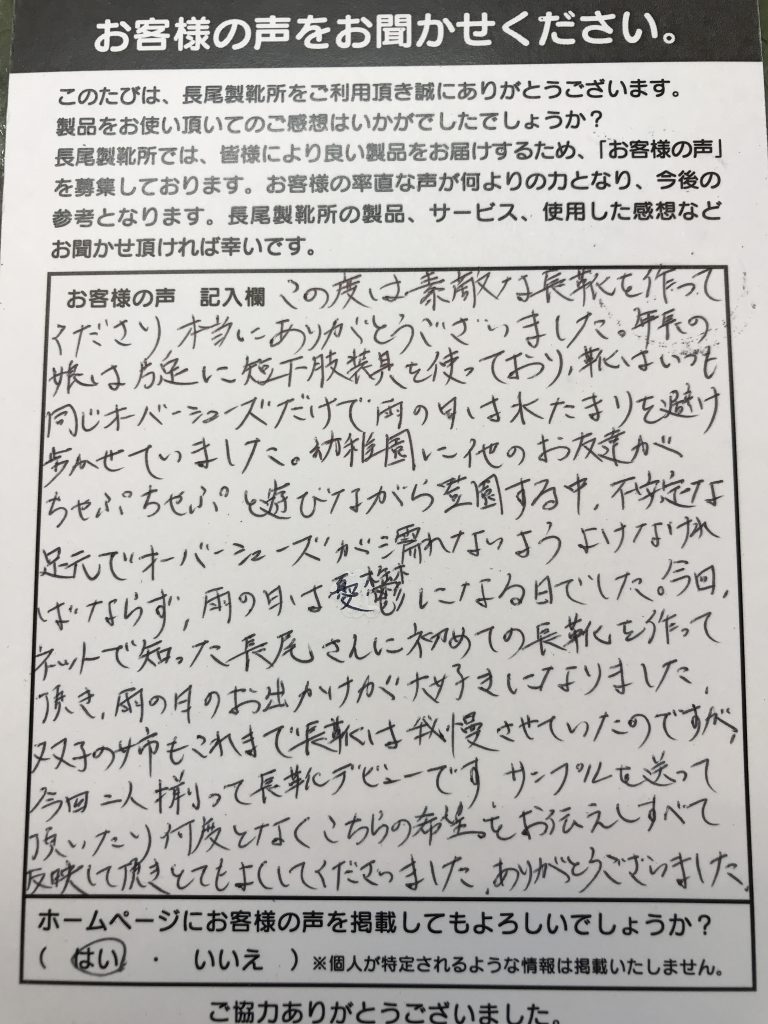 お客様の声をお聞かせください。
このたびは、長尾製靴所をご利用頂き誠にありがとうございます。
製品をお使い頂いてのご感想はいかがでしたでしょうか?
長尾製靴所では、皆様により良い製品をお届けするため、「お客様の声」
を募集しております。お客様の率直な声が何よりの力となり、今後の
参考となります。長尾製靴所の製品、サービス、使用した感想など
お聞かせ頂ければ幸いです。
お客様の声 記入欄 この度は素敵な長靴を作って
くださり本当にありがとうございました。年長の
娘は片足に短下肢装具を使っており,靴はいつも
同じオーバーシューズだけで雨の日は水たまりを避け
歩かせていました。幼稚園に他のお友達が
ちゃぷちゃぷと遊びながら登園する中,不安定な
足元でオーバーシューズが濡れないようよけなけれ
ばならず,雨の日は憂鬱になる日でした。今回,
ネットで知った長尾さんに初めての長靴を作って
頂き,雨の日のお出かけが大好きになりました,
双子の姉もこれまで長靴は我慢させていたのですが,
今回二人揃って長靴デビューです サンプルを送って
頂いたり何度となくこちらの希望をお伝えしすべて
反映して頂きとてもよくしてくださいました,ありがとうございました,
ホームページにお客様の声を掲載してもよろしいでしょうか?
( はい ・ いいえ )※個人が特定されるような情報は掲載いたしません。
ご協力ありがとうございました。